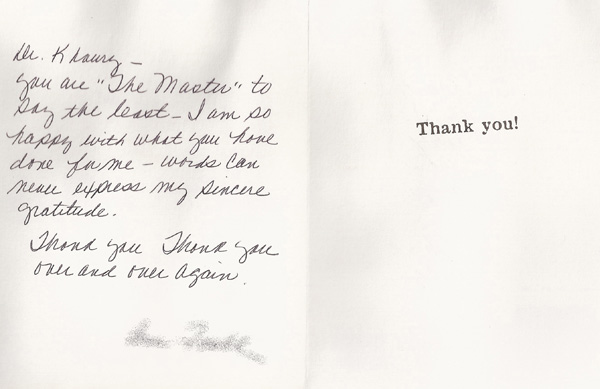 Dr. Khoury –
you are "The Master" to
say the least – I am so
happy with what you have
done for me – words can
never express my sincere
gratitude.
Thank you Thank you
over and over again.
Thank you!